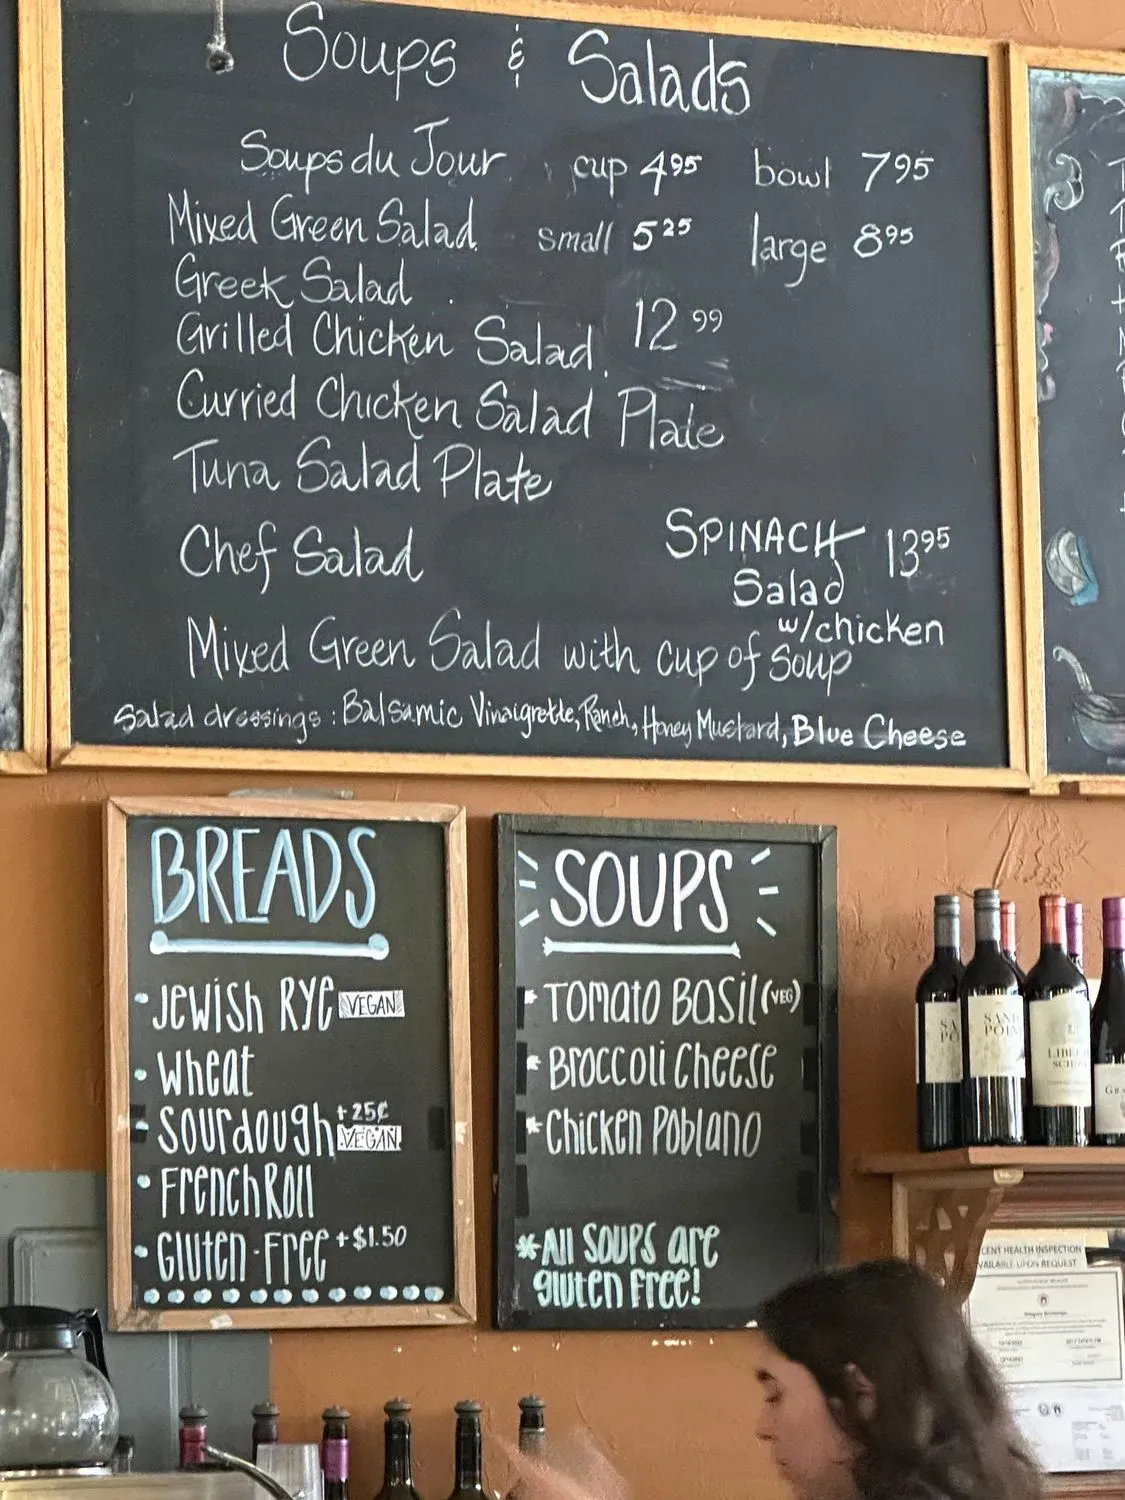 Soups & Salads
Soups du Jour cup 4.95 bowl 7.95
Mixed Green Salad small 5.25 large 8.95
Greek Salad
Grilled Chicken Salad 12.99
Curried Chicken Salad Plate
Tuna Salad Plate
Chef Salad
SPINACH 13.95
Salad
w/chicken
Mixed Green Salad with cup of soup
Salad dressings: Balsamic Vinaigrette, Ranch, Honey Mustard, Blue Cheese
BREADS
• JEWISH RYE VEGAN
• Wheat
- SOURDOUGH +25¢ VEGAN
• FRENCH ROLL
• GLUTEN-FREE +$1.50
SOUPS
* TOMATO BASIL (VEG)
* BROCCOLI CHEESE
* CHICKEN POBLANO
* ALL SOUPS ARE
GLUTEN FREE!
SAND
POINT
HEALTH INSPECTION
UPON REQUEST